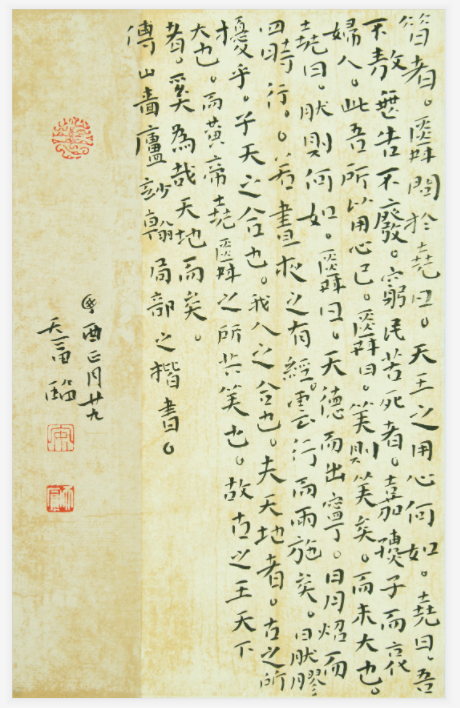 昔者。舜問於堯曰。天王之用心何如。堯曰。吾
不敖無告不廢。窮民苦死者。嘉孺子而哀
婦人。此吾所以用心已。舜曰。美則美矣。而未大也。
堯曰。然則何如。舜曰。天德而出寧。日月炤而
四時行。。若晝夜之有經。雲行而雨施矣。曰然膠
擾乎。子天之合也。我人之合也。夫天地者。古之所
大也。而黃帝堯舜之所共美也。故古之王天下
者。奚為哉天地而矣。
傅山嗇廬妙翰局部之楷書。
癸酉正月廿九
臨